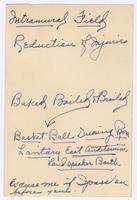 Intramural Field
Reduction of Injuries
Baked Boiled & Broiled
Basket Ball Dressing Rm
Sanitary East Antiseptic
Loud Speaker Booth
Excuse me if I pass on
before you